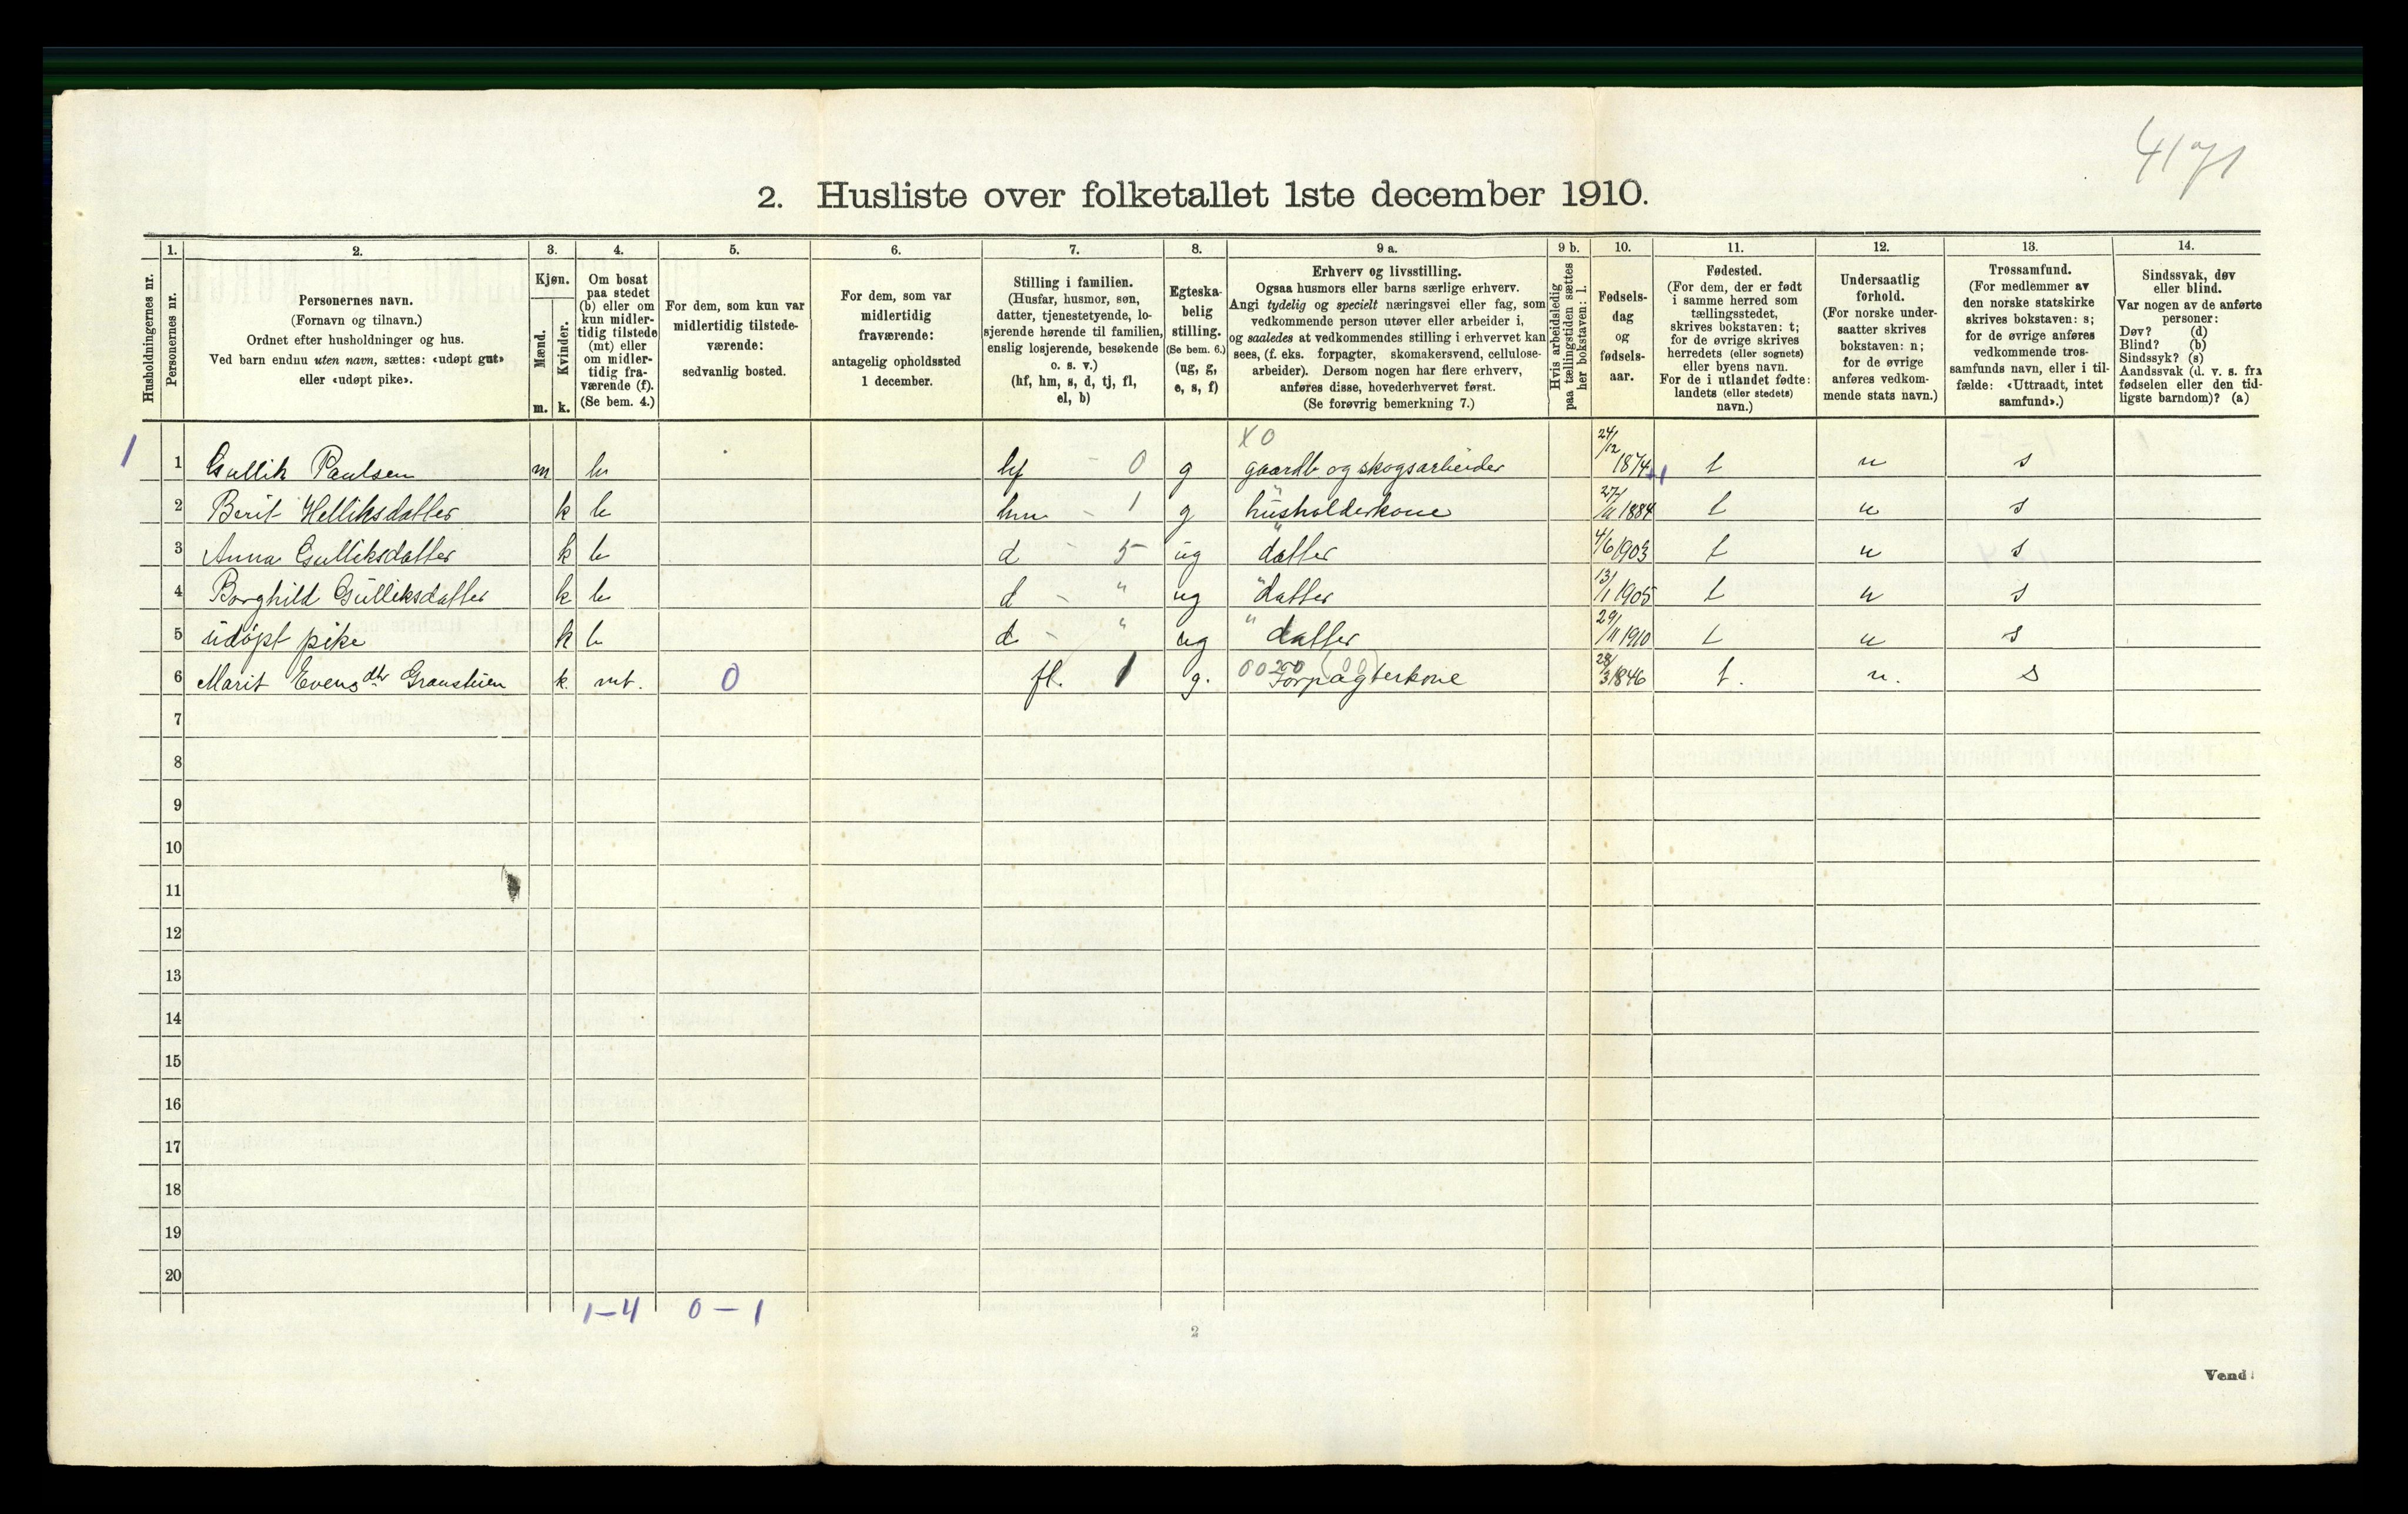 4171
2. Husliste over folketallet 1ste december 1910.
Husholdningernes nr.
1.
Personernes nr.
2.
Personernes navn.
(Fornavn og tilnavn.)
Ordnet efter husholdninger og hus.
Ved barn endnu uten navn, sættes: «udøpt gut»
eller «udøpt pike».
3.
Kjøn.
Mænd.
Kvinder.
m. k.
4.
Om bosat
paa stedet
(b) eller om
kun midler-
tidig tilstede
(mt) eller
om midler-
tidig fra-
værende (f).
(Se bem. 4.)
5.
For dem, som kun var
midlertidig tilstede-
værende:
sedvanlig bosted.
6.
For dem, som var
midlertidig
fraværende:
antagelig opholdssted
1 december.
7.
Stilling i familien.
(Husfar, husmor, søn,
datter, tjenestetyende, lo-
sjerende hørende til familien,
enslig losjerende, besøkende
o. s. v.)
(hf, hm, s, d, tj, fl,
el, b)
8.
Egteska-
belig
stilling.
(Se bem. 6.)
(ug, g,
e, s, f)
9 a.
Erhverv og livsstilling.
Ogsaa husmors eller barns særlige erhverv.
Angi tydelig og specielt næringsvei eller fag, som
vedkommende person utøver eller arbeider i,
og saaledes at vedkommendes stilling i erhvervet kan
sees, (f. eks. forpagter, skomakersvend, cellulose-
arbeider). Dersom nogen har flere erhverv,
anføres disse, hovederhvervet først.
(Se forøvrig bemerkning 7.)
9 b.
Hvis arbeidsledig
paa tællingstiden sættes
her bokstaven: l.
10.
Fødsels-
dag
og
fødsels-
aar.
11.
Fødested.
(For dem, der er født
i samme herred som
tællingsstedet,
skrives bokstaven: t;
for de øvrige skrives
herredets (eller sognets)
eller byens navn.
For de i utlandet fødte:
landets (eller stedets)
navn.)
12.
Undersaatlig
forhold.
(For norske under-
saatter skrives
bokstaven: n;
for de øvrige
anføres vedkom-
mende stats navn.)
13.
Trossamfund.
(For medlemmer av
den norske statskirke
skrives bokstaven: s;
for de øvrige anføres
vedkommende tros-
samfunds navn, eller i til-
fælde: «Uttraadt, intet
samfund».)
14.
Sindssvak, døv
eller blind.
Var nogen av de anførte
personer:
Døv? (d)
Blind? (b)
Sindssyk? (s)
Aandssvak (d. v. s. fra
fødselen eller den tid-
ligste barndom)? (a)
X0
1 1 Gullik Paulsen m b hf - 0 g gaardb og skogsarbeider 24/12 1874 +1 t n s
2 Berit Helliksdatter k b hm - 1 g husholderkone 27/11 1884 t n s
3 Anna Gulliksdatter k b d - 5 ug " datter 4/6 1903 t n s
4 Borghild Gulliksdatter k b d - " ug " datter 13/1 1905 t n s
5 udøpt pike k b d - " ug " datter 29/11 1910 t n s
6 Marit Evensdtr k. mt. 0 fl. 1 g. 00 Forpagterkone (00) 28/3 1846 t. n. s
7
8
9
10
11
12
13
14
15
16
17
18
19
20
1-4 0-1
2
Vend!